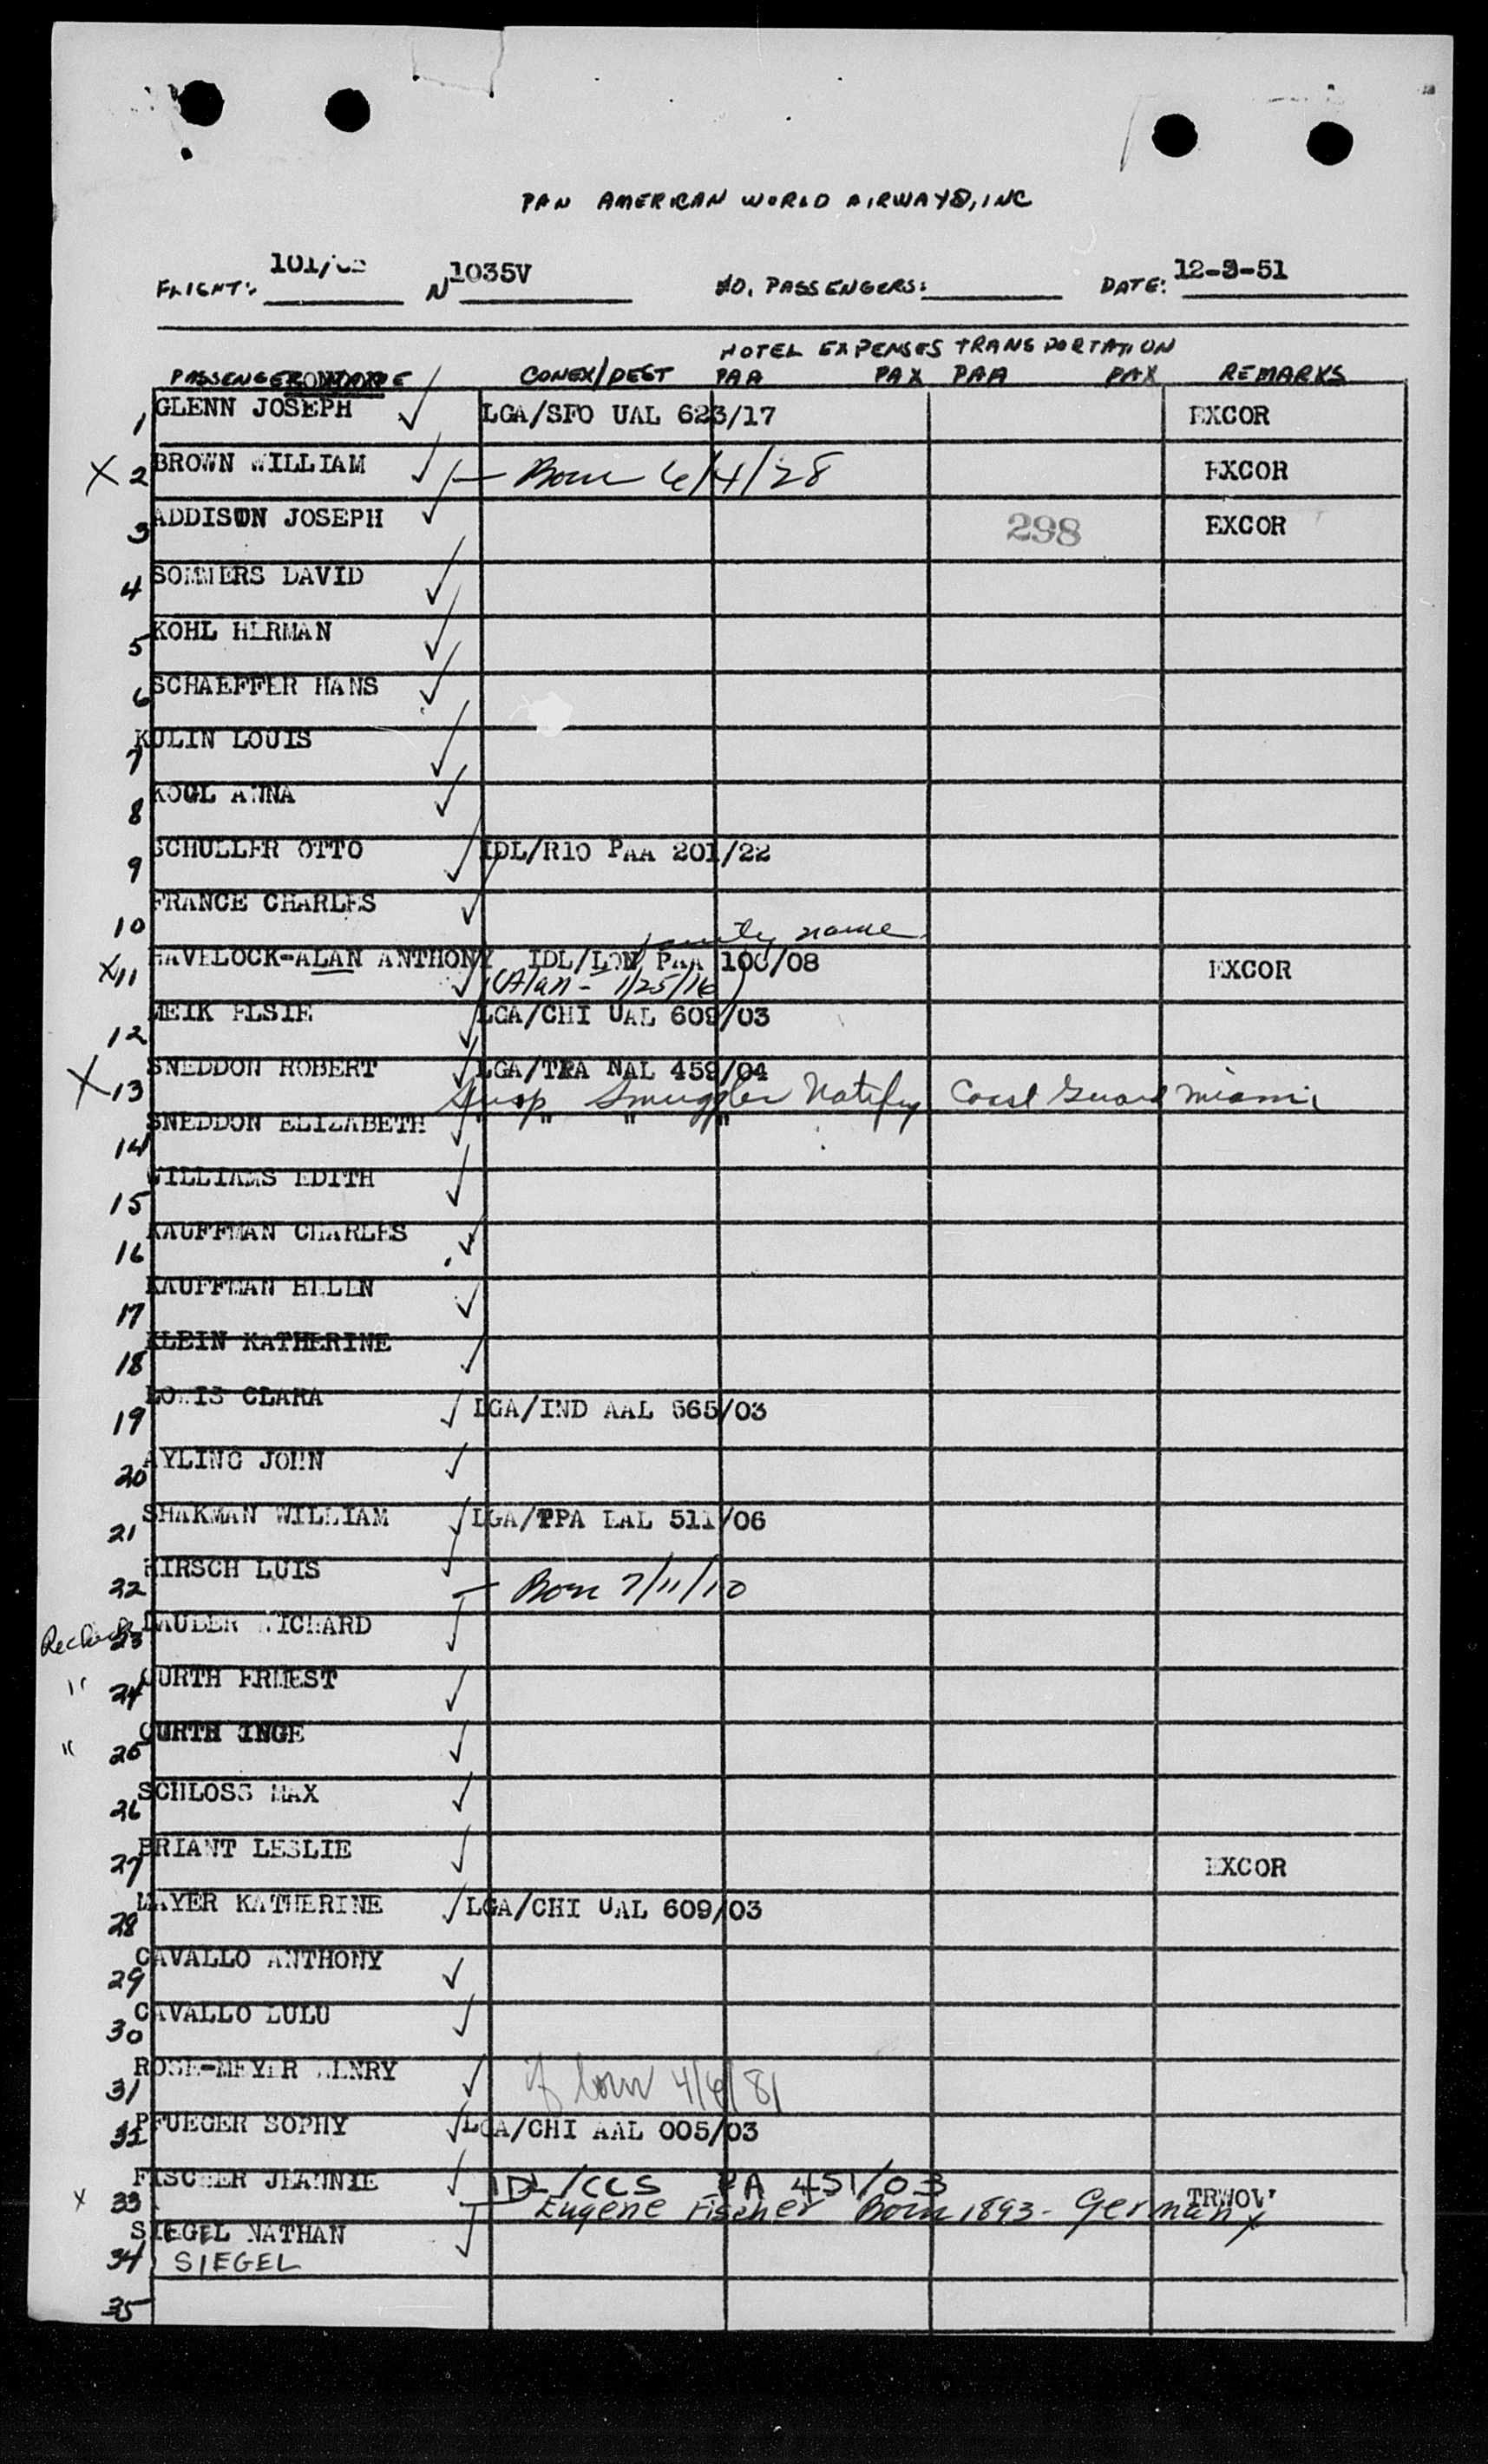 PAN AMERICAN WORLD AIRWAYS, INC
FLIGHT: 101/ N 1035V NO. PASSENGERS: DATE: 12-3-51
HOTEL EXPENSES TRANSPORTATION
PASSENGER CONEX/DEST PAA PAX PAA PAX REMARKS
1 GLENN JOSEPH LGA/SFO UAL 623/17 EXCOR
X 2 BROWN WILLIAM — Born 6/4/28 EXCOR
3 ADDISON JOSEPH 298 EXCOR
4 SOMMERS DAVID
5 KOHL HERMAN
6 SCHAEFFER HANS
7 KULIN LOUIS
8 KOGL ANNA
9 SCHULLER OTTO IDL/RIO PAA 201/22
10 FRANCE CHARLES
family name
X 11 HAVELOCK-ALAN ANTHONY IDL/LON PAA 100/08 EXCOR
(Alan - 1/25/16)
12 MEIK ELSIE LGA/CHI UAL 609/03
X 13 SNEDDON ROBERT LGA/TPA NAL 459/04
Susp Smuggler Notify Coast Guard Miami
14 SNEDDON ELIZABETH " " " "
15 WILLIAMS EDITH
16 KAUFFMAN CHARLES
17 KAUFFMAN HELEN
18 KLEIN KATHERINE
19 LOWIS CLARA LGA/IND AAL 565/03
20 AYLING JOHN
21 SHAKMAN WILLIAM LGA/TPA EAL 511/06
22 HIRSCH LUIS — Born 7/11/10
Recheck 23 LAUDER RICHARD
" 24 CURTH ERNEST
" 25 CURTH INGE
26 SCHLOSS MAX
27 BRIANT LESLIE EXCOR
28 MAYER KATHERINE LGA/CHI UAL 609/03
29 CAVALLO ANTHONY
30 CAVALLO LULU
31 ROSE-MEYER HENRY if born 4/6/81
32 PFUEGER SOPHY LGA/CHI AAL 005/03
X 33 FISCHER JEANNIE IDL/CCS PA 451/03 TRWOV
Eugene Fischer Born 1893 - German X
34 SIEGEL NATHAN
SIEGEL
35